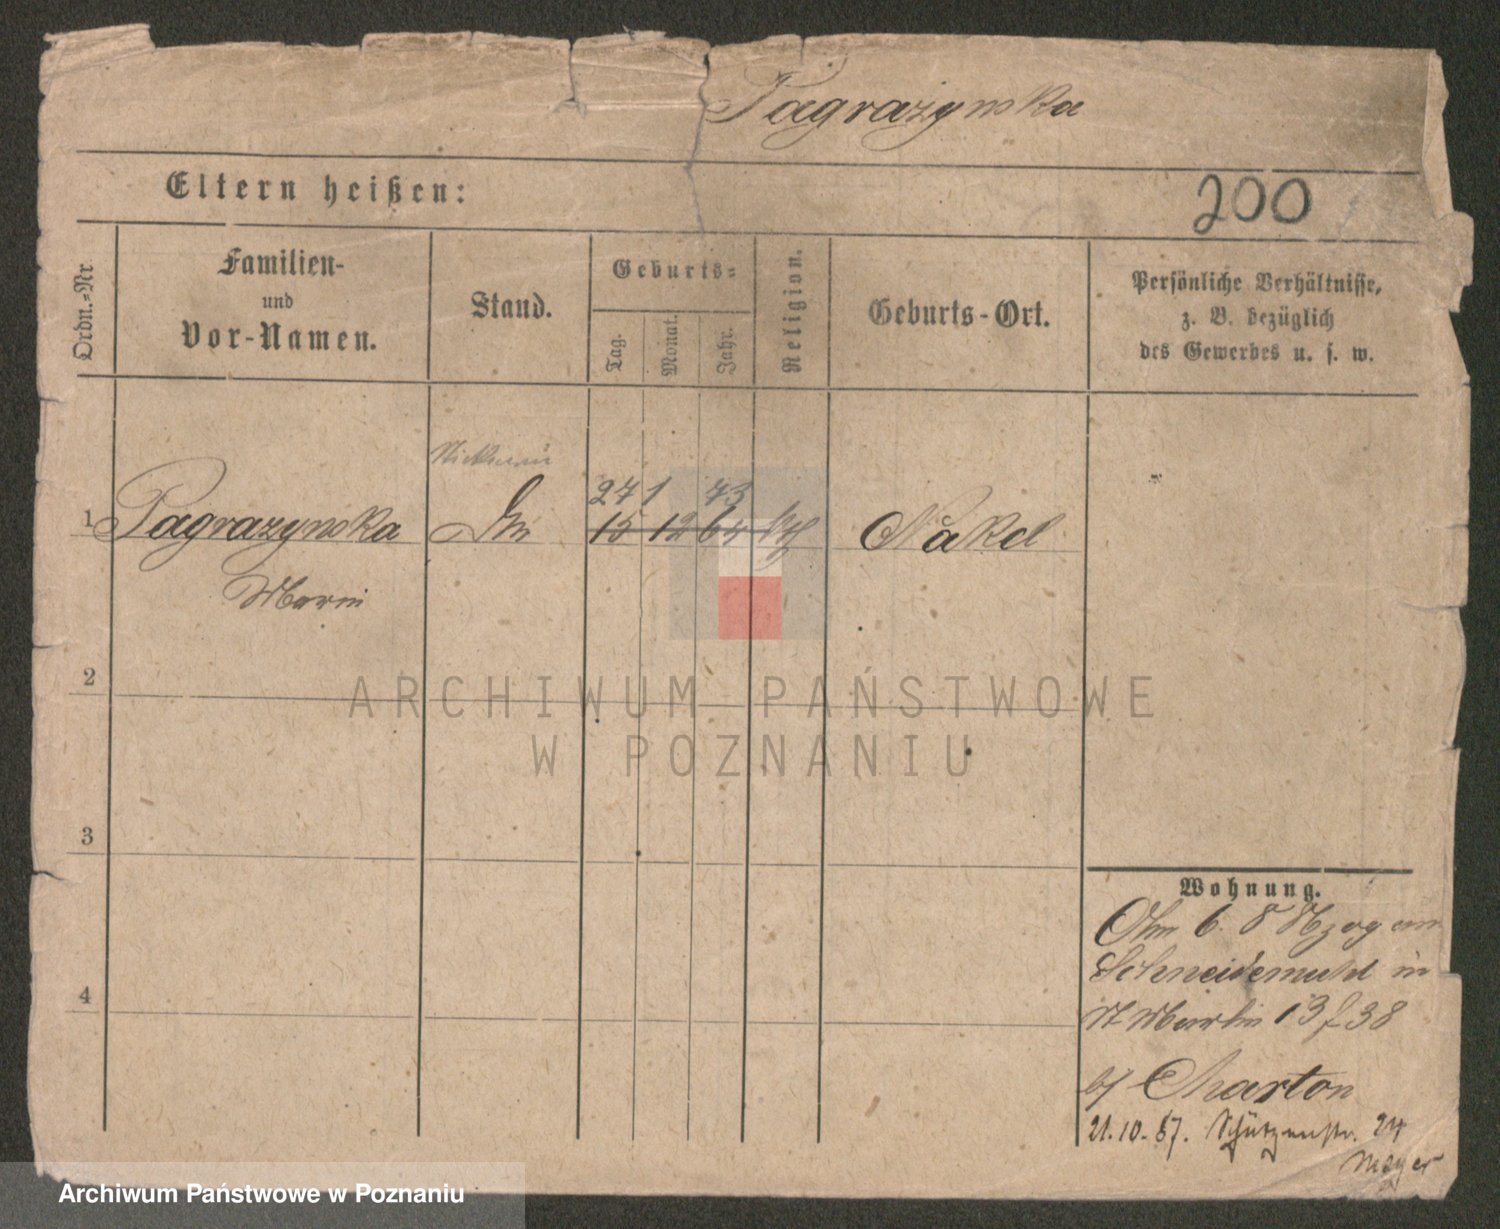 Pagrazynska
Eltern heißen:
200
Ordn.=Nr.
Familien-
und
Vor-Namen.
Stand.
Geburts=
Tag.
Monat.
Jahr.
Religion.
Geburts-Ort.
Persönliche Verhältnisse,
z. B. bezüglich
des Gewerbes u. s. w.
27 1 73
1 Pagrazynska 15 12 64 kth Nakel
Marie
2
ARCHIWUM PAŃSTWOWE
W POZNANIU
3
Wohnung.
6. 8
Schneidemuhl in
St Martin 13 f 38
b/ Charton
4
21.10.87. Schützenstr. 24
Meyer
Archiwum Państwowe w Poznaniu